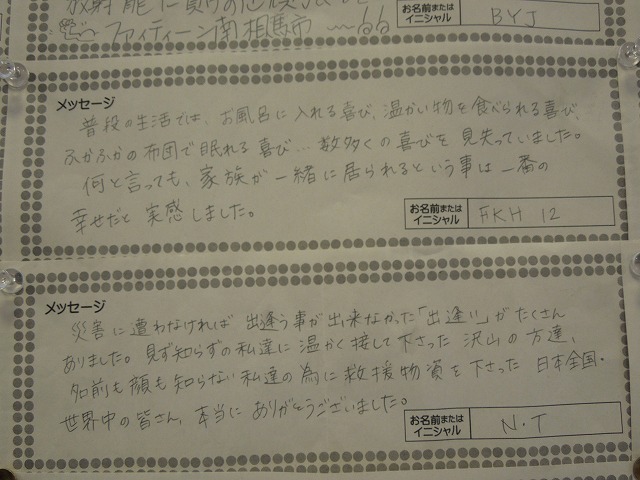 ファイティーン南相馬市
お名前または
イニシャル
BYJ
メッセージ
普段の生活では、お風呂に入れる喜び、温かい物を食べられる喜び、
ふかふかの布団で眠れる喜び…数多くの喜びを見失っていました。
何と言っても、家族が一緒に居られるという事は一番の
幸せだと実感しました。
お名前または
イニシャル
FKH 12
メッセージ
災害に遭わなければ出逢う事が出来なかった「出逢い」がたくさん
ありました。見ず知らずの私達に温かく接して下さった沢山の方達、
名前も顔も知らない私達の為に救援物資を下さった日本全国・
世界中の皆さん、本当にありがとうございました。
お名前または
イニシャル
N・T